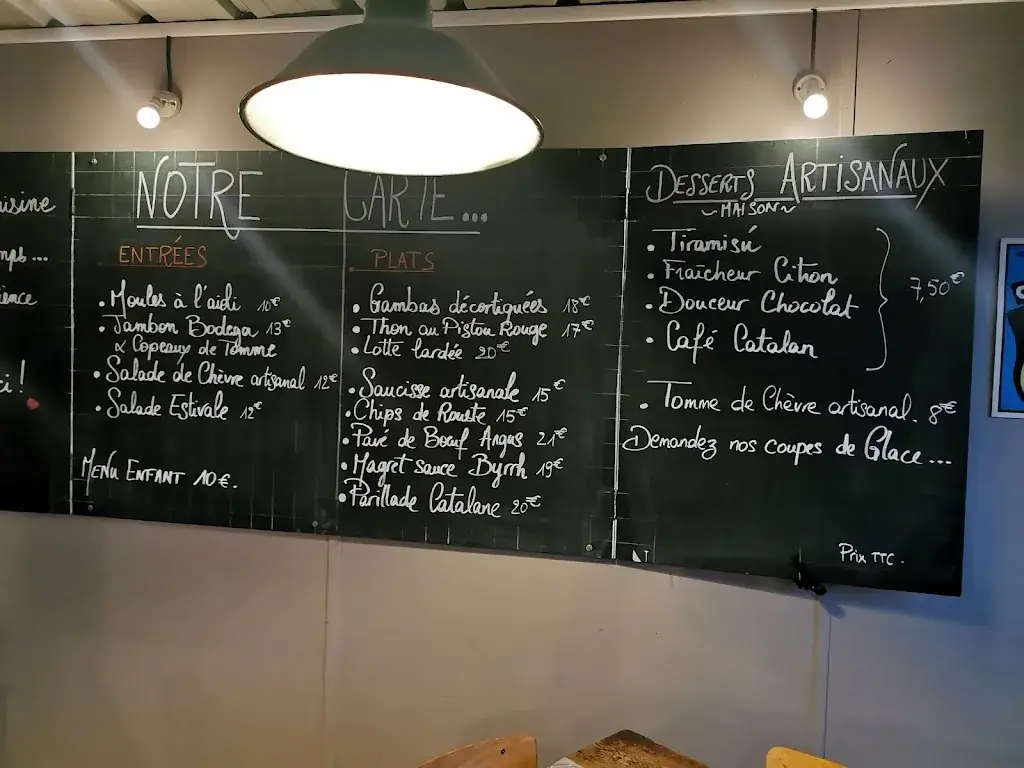 uisine
mps...
ience
ci!
NOTRE CARTE...
ENTRÉES
• Moules à l'aïoli 10€
• Jambon Bodega 13€
& Copeaux de Tomme
• Salade de Chèvre artisanal 12€
• Salade Estivale 12€
MENU ENFANT 10€.
PLATS
• Gambas décortiquées 18€
• Thon au Pistou Rouge 17€
• Lotte lardée 20€
• Saucisse artisanale 15€
• Chips de Rouste 15€
• Pavé de Bœuf Angus 21€
• Magret sauce Byrrh 19€
• Parillade Catalane 20€
DESSERTS ARTISANAUX
~MAISON~
• Tiramisú
• Fraîcheur Citron
• Douceur Chocolat
• Café Catalan
7,50€
• Tomme de Chèvre artisanal. 8€
Demandez nos coupes de Glace...
Prix TTC.